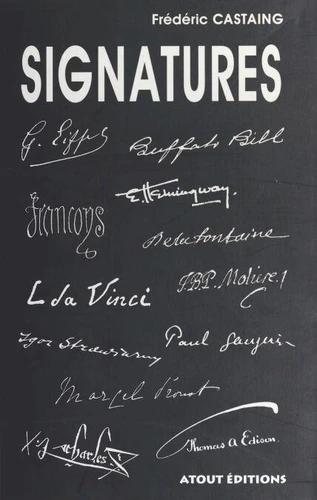 Frédéric CASTAING
SIGNATURES
G. Eiffel
Buffalo Bill
E. Hemingway.
Francoys
De la fontaine
J.B.P. Moliere
L da Vinci
Igor Strawinsky
Paul Gauguin
Marcel Proust
Charles
Thomas A Edison.
ATOUT ÉDITIONS